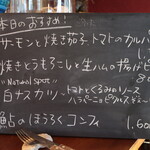 本日のおすすめ!
サーモンと焼き茄子 トマトのカルパ
焼きとうもろこしと生ハムの揚げピ
"Natural Spice"
白ナスカツ トマトとくるみのソース
ハラペーニョピクルス
鮎のほうろくコンフィ 1.60